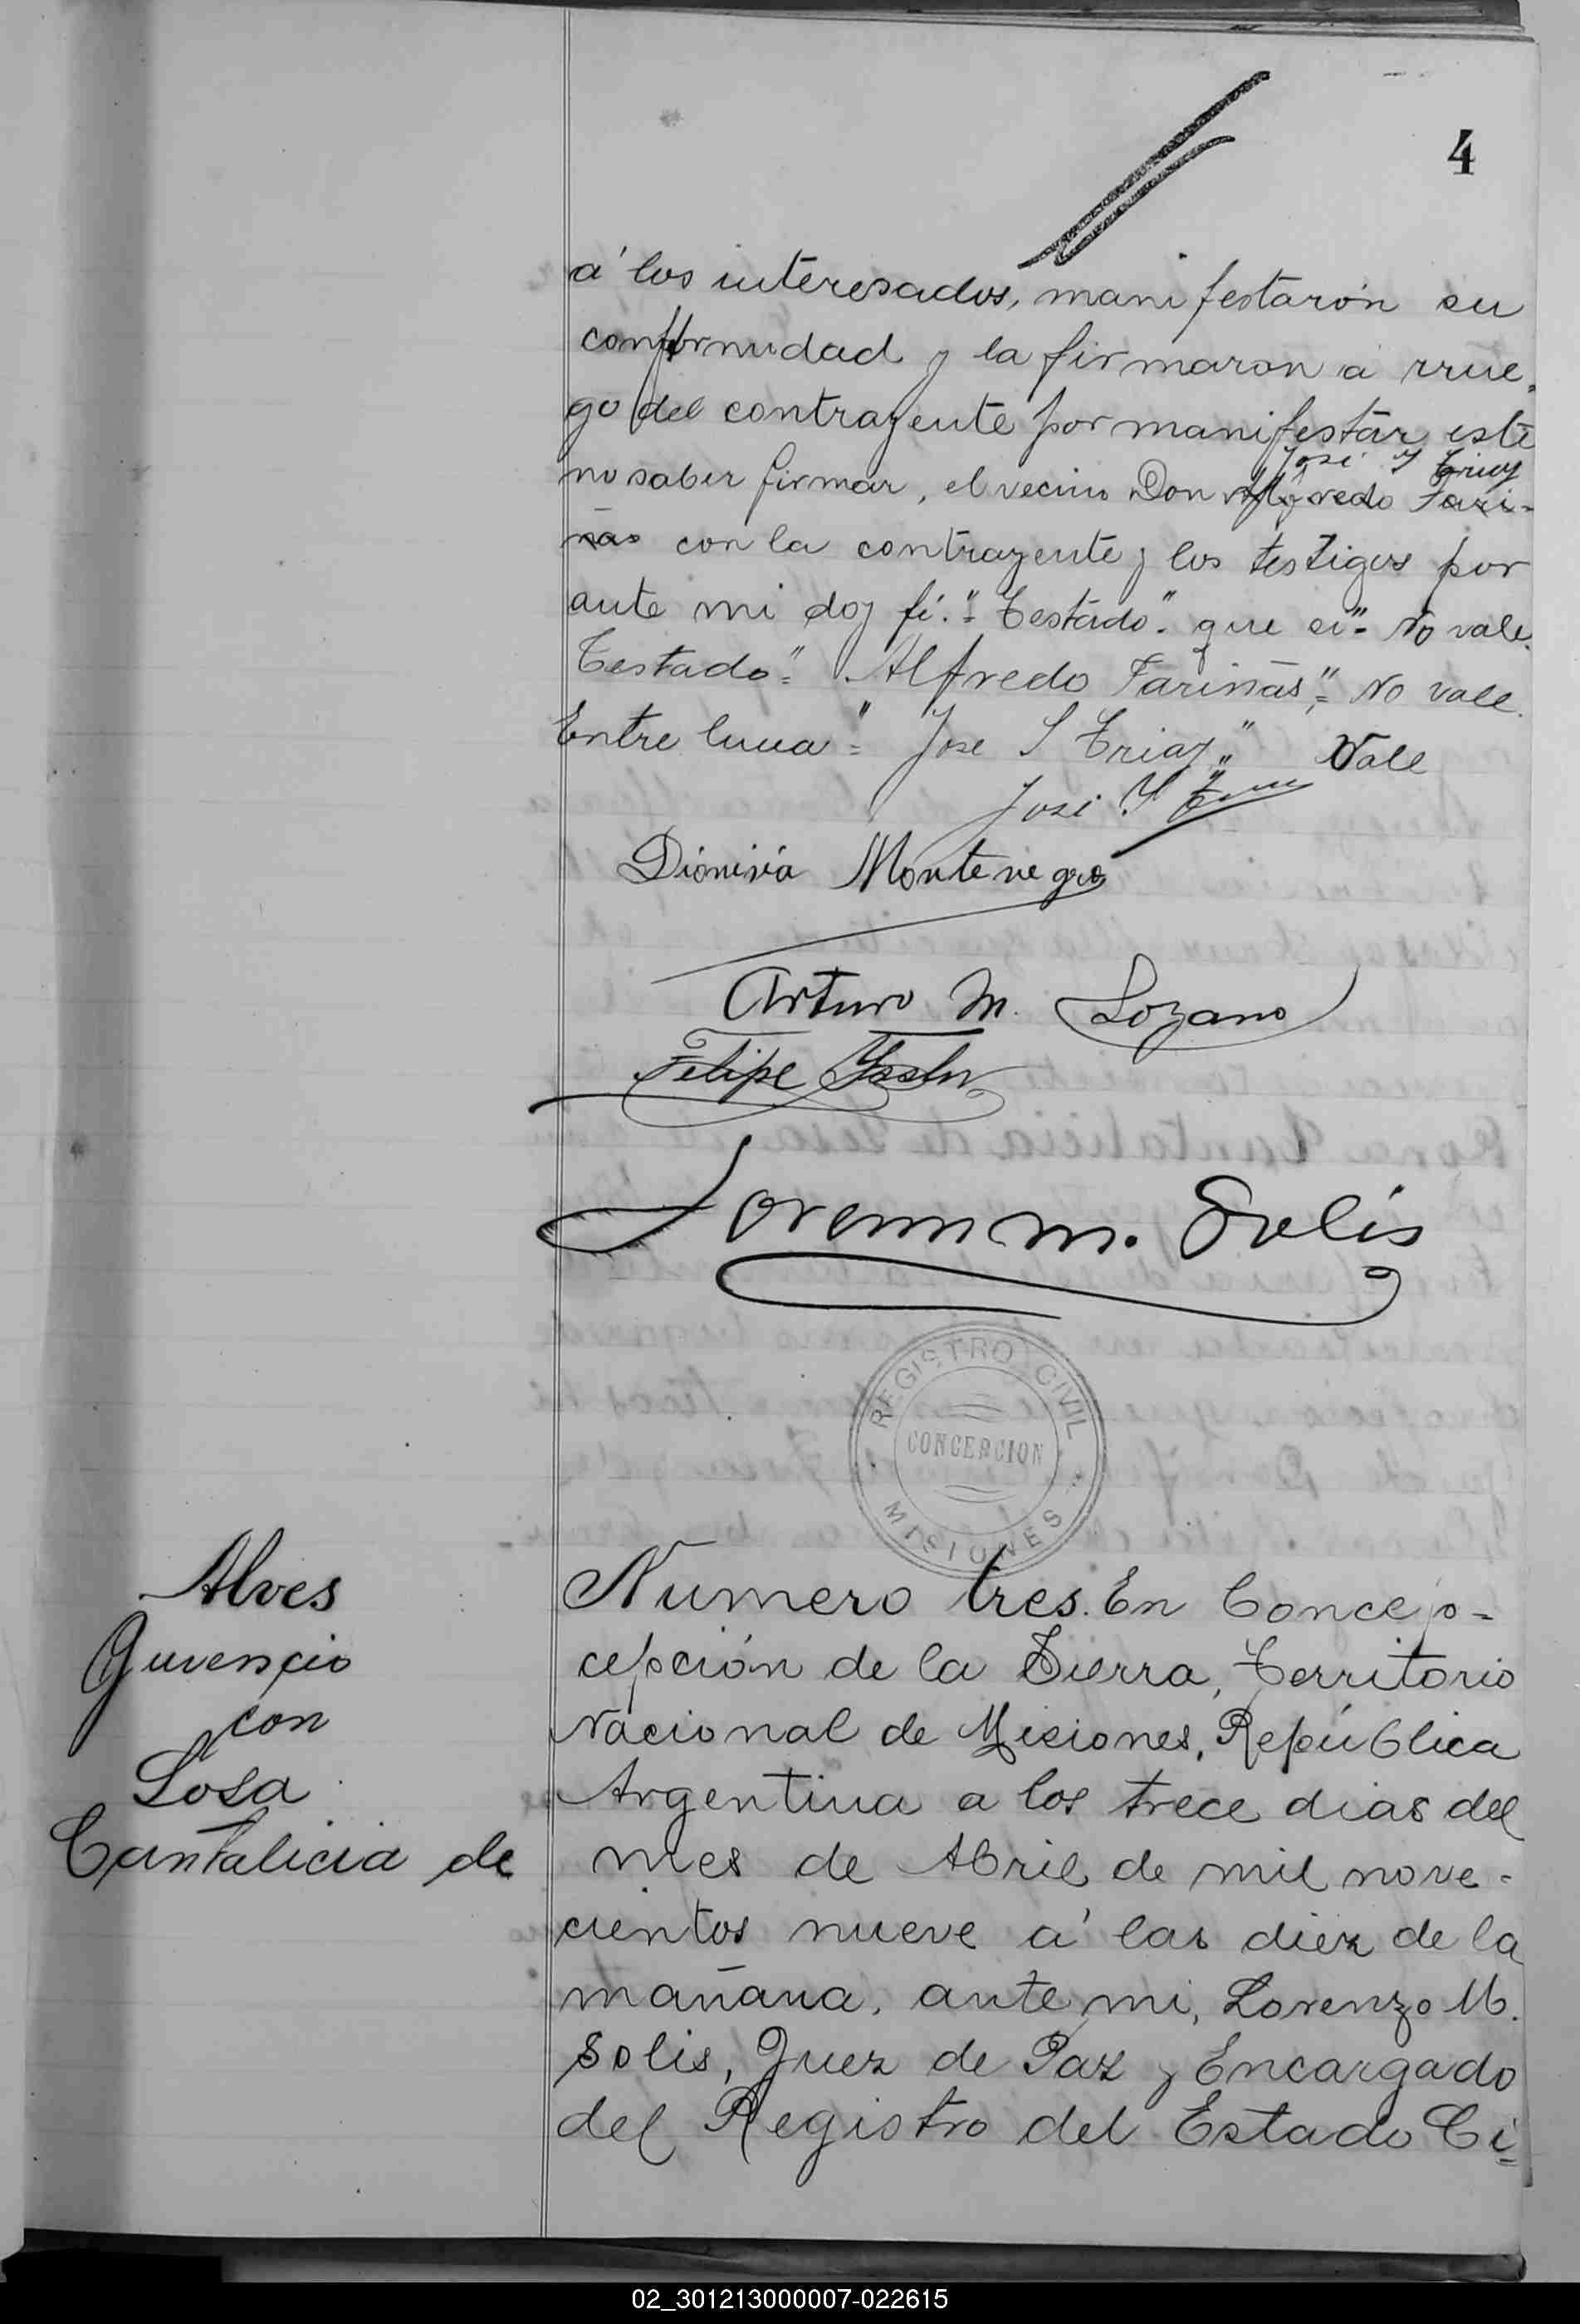 4
á los interesados, manifestarón su
conformidad y la firmaron a rrue-
go del contrayente por manifestar este
José S Triay
no saber firmar, el vecino Don Alfredo Fari-
ñas con la contrayente y los testigos por
ante mi doy fé. "Testado" que si" No vale.
Testado" Alfredo Fariñas" No vale.
Entre linea" Jose S Triay" Vale
José S
Dionisia Montenegro
Arturo M. Lozano
Felipe
Lorenzo M. Solis
REGISTRO CIVIL
CONCEPCION
MISIONES
Alves
Juvencio
con
Losa
Cantalicia de
Numero tres. En Concep-
cepción de la Sierra, Territorio
Nacional de Misiones, República
Argentina a los trece dias del
mes de Abril de mil nove-
cientos nueve á las diez de la
mañana, ante mi, Lorenzo M.
Solis, Juez de Paz y Encargado
del Registro del Estado Ci-
02_301213000007-022615